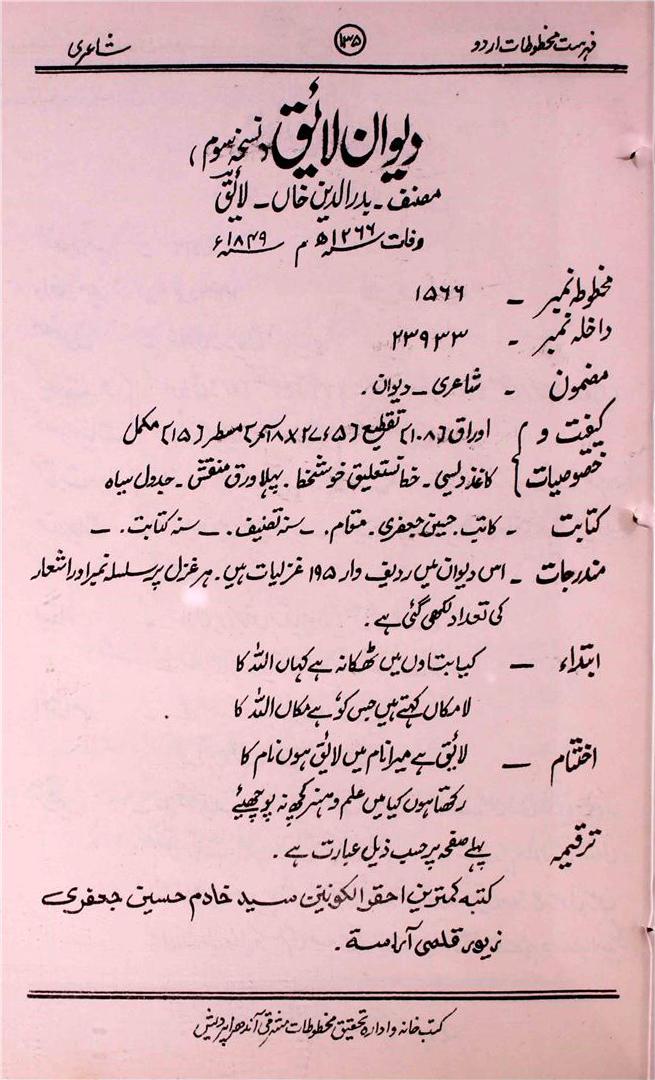 فہرست مخطوطات اردو ۱۳۵ شاعری
دیوان لائق (نسخہ سوم)
مصنف ۔ بدر الدین خاں ۔ لائق
وفات ۱۲۶۶ھ م ۱۸۴۹ء
مخطوطہ نمبر ۔ ۱۵۶۶
داخلہ نمبر ۔ ۲۳۹۳۳
مضمون ۔ شاعری ۔ دیوان۔
کیفیت و اوراق [۱۰۸] تقطیع [۲۷٫۵ × ۱۸ سمر] مسطر [۱۵] مکمل
خصوصیات کاغذ دیسی ۔ خط نستعلیق خوشخط ۔ پہلا ورق منقش ۔ جدول سیاہ
کتابت ۔ کاتب ۔ حسین جعفری ۔ مقام ۔ ۔ سنہ تصنیف ۔ ۔ سنہ کتابت ۔ ۔
مندرجات ۔ اس دیوان میں ردیف وار ۱۹۵ غزلیات ہیں۔ ہر غزل پر سلسلہ نمبر اور اشعار
کی تعداد لکھی گئی ہے۔
ابتداء ۔ کیا بتاوں میں ٹھکانہ ہے کہاں اللہ کا
لامکاں کہتے ہیں جس کو ہے مکاں اللہ کا
اختتام ۔ لائق ہے میرا نام میں لائق ہوں نام کا
رکھتا ہوں کیا میں علم و ہنر کچھ نہ پوچھیئے
ترقیمہ پہلے صفحہ پر حسب ذیل عبارت ہے۔
کتبہ کمترین احقر الکونین سید خادم حسین جعفری
زیور قلمی آراستہ۔
کتب خانہ و ادارہ تحقیق مخطوطات مشرقی آندھرا پردیش